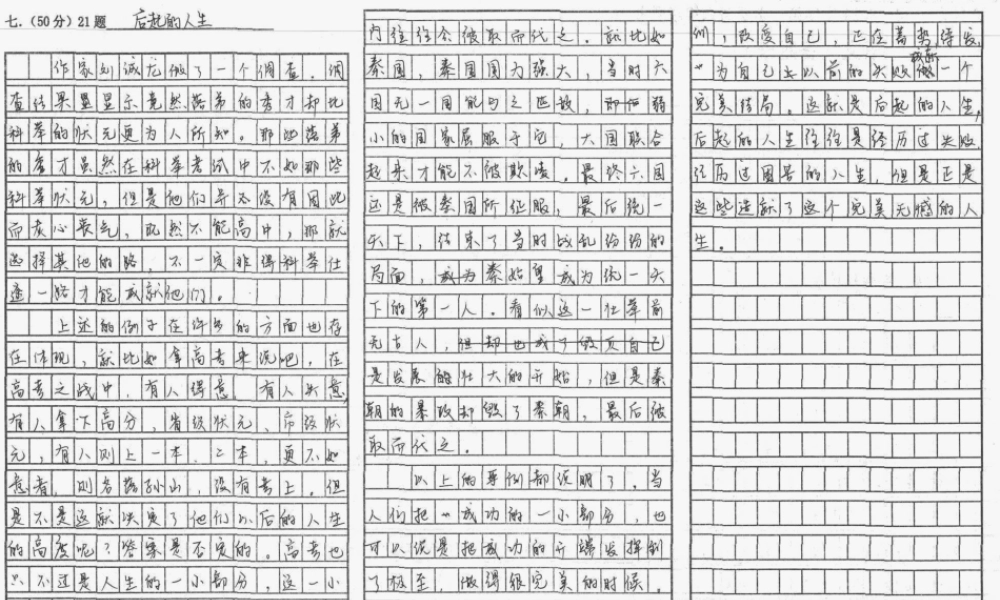 七.(50分)21题 后起的人生
作家刘诚龙做了一个调查,调
查结果显示竟然落第的秀才却比
科举的状元更为人所知。那些落第
的秀才虽然在科举考试中不如那些
科举状元,但是他们并没有因此
而灰心丧气,既然不能高中,那就
选择其他的路,不一定非得科举仕
途一路才能成就他们。
上述的例子在许多的方面也存
在体现,就比如拿高考来说吧,在
高考之战中,有人得意,有人失意,
有人拿下高分,省级状元、市级状
元,有人则上一本、二本,更不如
意者,则名落孙山,没有考上。但
是不是这就决定了他们以后的人生
的高度呢?答案是否定的。高考也
只不过是人生的一小部分,这一小
内往往会被取而代之。就比如
秦国,秦国国力强大,当时六
国无一国能与之匹敌,弱
小的国家屈服于它,大国联合
起来才能不被欺凌。最终六国
还是被秦国所征服,最后统一
天下,结束了当时战乱纷纷的
局面,秦始皇成为统一天
下的第一人。看似这一壮举前
无古人,
是发展的壮大的开始,但是秦
朝的暴政却毁了秦朝,最后被
取而代之。
以上的事例都说明了,当
人们把成功的一小部分,也
可以说是把成功的开端发挥到
了极至,做得很完美的时候,
们,改变自己,正在蓄势待发,
为自己以前的失败做一个
完美结局。这就是后起的人生,
后起的人生往往是经历过失败,
经历过困苦的人生,但是正是
这些造就了这个完美无憾的人
生。